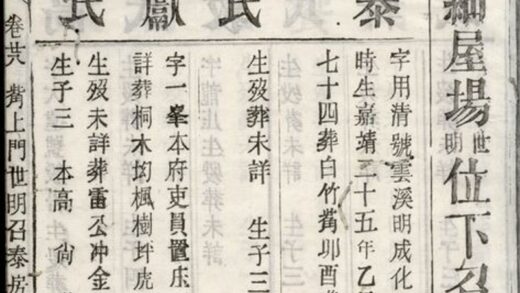 細屋場世明位下召
泰
字用清號雲溪明成化
時生嘉靖三十五年乙
七十四葬白竹觜卯酉
氏
生歿葬未詳 生子三
獻
字一峯本府吏員置庄
詳葬桐木坳楓樹坪虎
氏
生歿未詳葬雷公冲金
生子三 本高 尙
卷廿八 觜上門世明召泰房